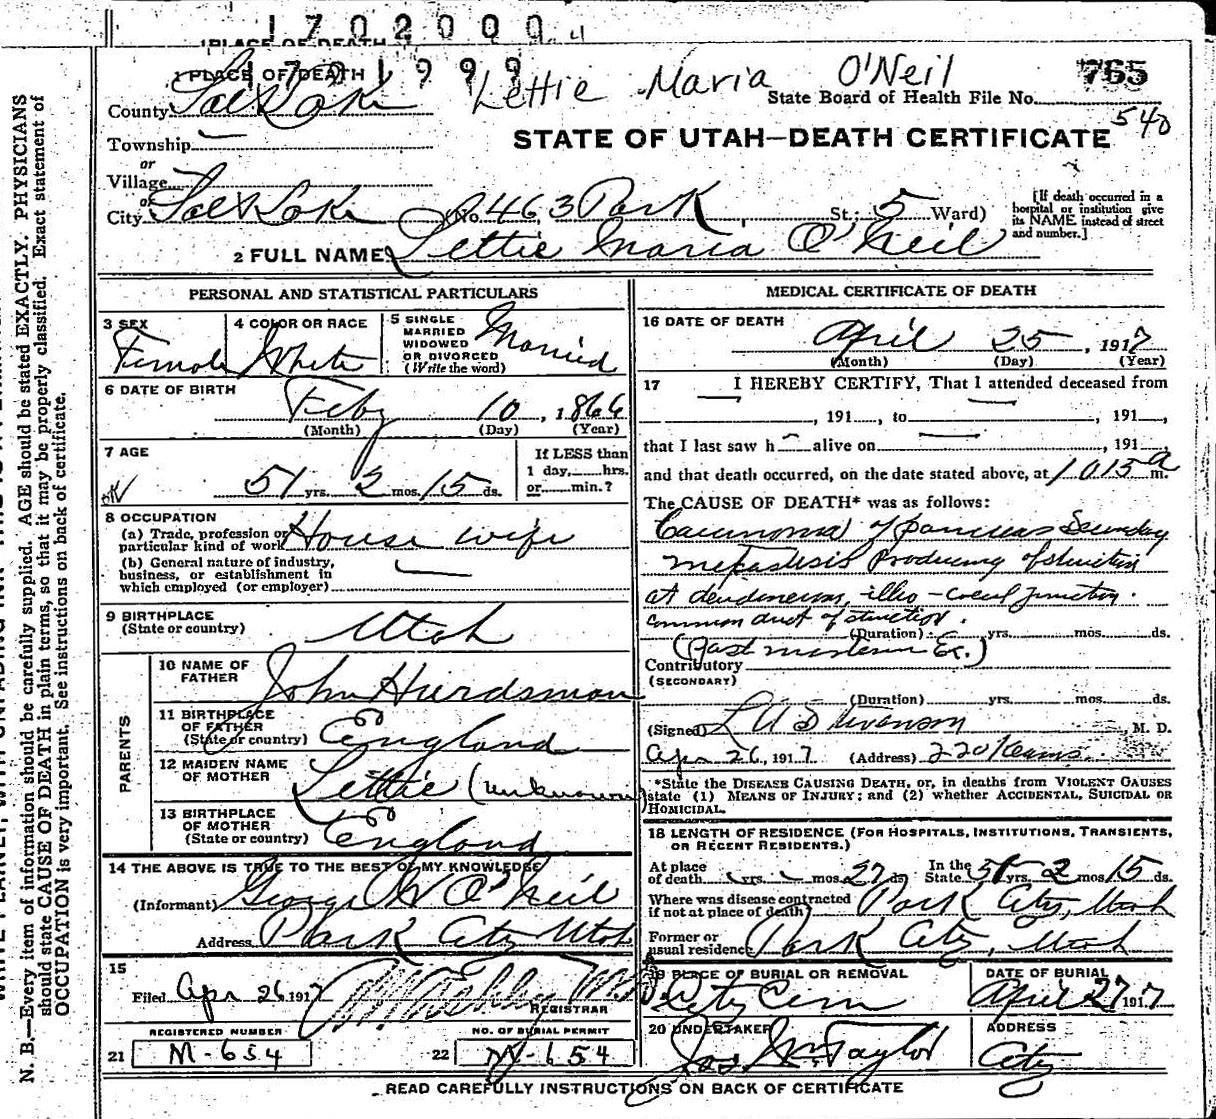 1702000 4
PLACE OF DEATH
1701999
1 PLACE OF DEATH
Lettie Maria O'Neil
765
County Salt Lake
State Board of Health File No.
540
Township
STATE OF UTAH—DEATH CERTIFICATE
or
Village
or
City Salt Lake (No. 463 Park St.; 5 Ward)
[If death occurred in a
hospital or institution give
its NAME instead of street
and number.]
2 FULL NAME Lettie Maria O'Neil
PERSONAL AND STATISTICAL PARTICULARS
3 SEX
Female
4 COLOR OR RACE
White
5 SINGLE
MARRIED
WIDOWED
OR DIVORCED
(Write the word)
Married
6 DATE OF BIRTH
Feby 10, 1866
(Month) (Day) (Year)
7 AGE
51 yrs. 2 mos. 15 ds.
If LESS than
1 day, hrs.
or min.?
8 OCCUPATION
(a) Trade, profession or
particular kind of work House wife
(b) General nature of industry,
business, or establishment in
which employed (or employer)
9 BIRTHPLACE
(State or country) Utah
PARENTS
10 NAME OF
FATHER John Hurdsman
11 BIRTHPLACE
OF FATHER
(State or country) England
12 MAIDEN NAME
OF MOTHER Lettie (unknown)
13 BIRTHPLACE
OF MOTHER
(State or country) England
14 THE ABOVE IS TRUE TO THE BEST OF MY KNOWLEDGE
(Informant) George W O'Neil
Address Park City Utah
15
Filed Apr 26 1917
REGISTRAR
REGISTERED NUMBER
21 M-654
NO. OF BURIAL PERMIT
22 M-654
MEDICAL CERTIFICATE OF DEATH
16 DATE OF DEATH
April 25, 1917
(Month) (Day) (Year)
17 I HEREBY CERTIFY, That I attended deceased from
, 191 , to , 191 ,
that I last saw h alive on , 191 ,
and that death occurred, on the date stated above, at 1015 a m.
The CAUSE OF DEATH* was as follows:
Carcinoma of pancreas Secondary
metastesis Producing obstruction
at duodenum, illio-coecal junction.
common duct obstruction.
(Duration) yrs. mos. ds.
(Post mortem Ex.)
Contributory
(SECONDARY)
(Duration) yrs. mos. ds.
(Signed) M. D.
Apr 26, 1917 (Address) 220 Kearns
*State the DISEASE CAUSING DEATH, or, in deaths from VIOLENT CAUSES
state (1) MEANS OF INJURY; and (2) whether ACCIDENTAL, SUICIDAL OR
HOMICIDAL.
18 LENGTH OF RESIDENCE (FOR HOSPITALS, INSTITUTIONS, TRANSIENTS,
OR RECENT RESIDENTS.)
At place
of death yrs. mos. 27 ds.
In the
State 51 yrs. 2 mos. 15 ds.
Where was disease contracted
if not at place of death? Park City, Utah
Former or
usual residence Park City, Utah
19 PLACE OF BURIAL OR REMOVAL
City Cem
DATE OF BURIAL
April 27 1917
20 UNDERTAKER
Jos Wm. Taylor
ADDRESS
City
READ CAREFULLY INSTRUCTIONS ON BACK OF CERTIFICATE
N. B.—Every item of information should be carefully supplied. AGE should be stated EXACTLY. PHYSICIANS
should state CAUSE OF DEATH in plain terms, so that it may be properly classified. Exact statement of
OCCUPATION is very important. See instructions on back of certificate.